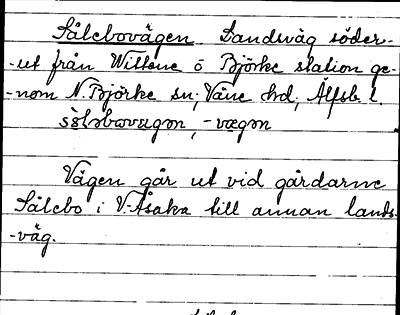 Sålebovägen Landsväg söder-
-ut från Wittene ö Björke station ge-
-nom N. Björke sn; Väne hd, Älfsb. l.
sålebovægən, -vægən
Vägen går ut vid gårdarne
Sålebo i V.-Åsaka till annan lands-
-väg.